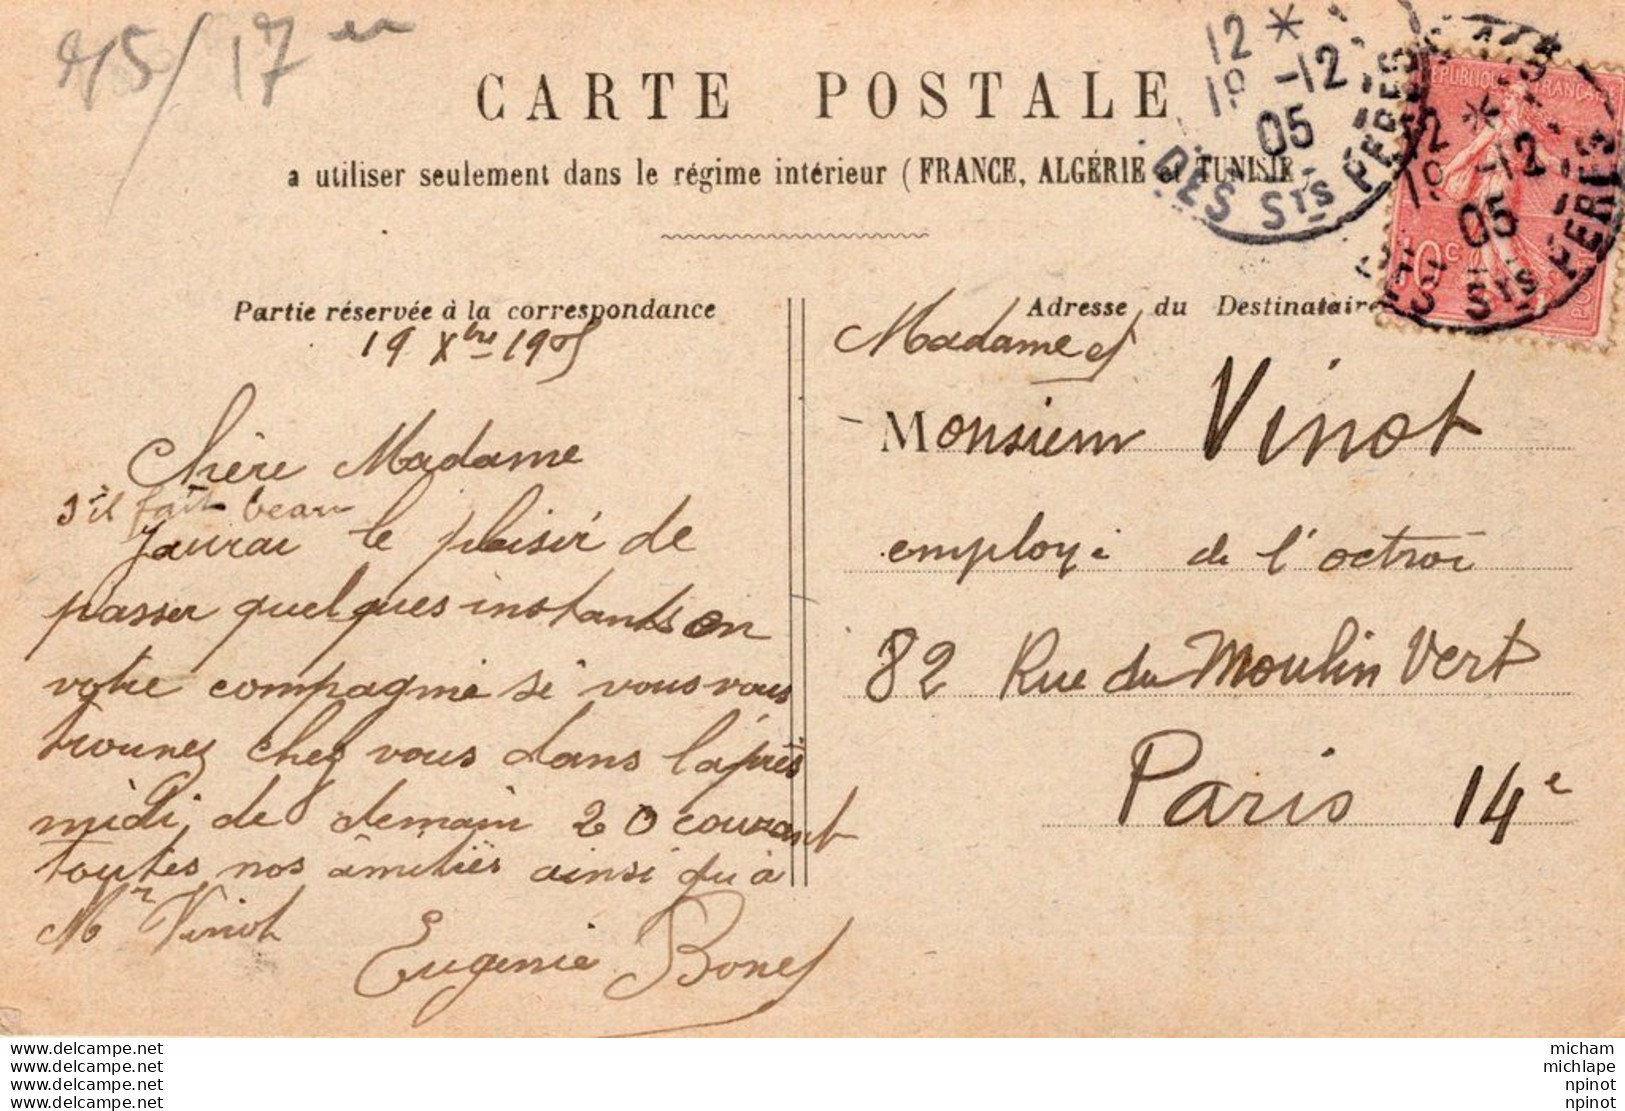 75/17 en
CARTE POSTALE
a utiliser seulement dans le régime intérieur (FRANCE, ALGÉRIE et TUNISIE)
12 *
19 -12
05
DES STS PERES
RÉPUBLIQUE FRANÇAISE
10 c
12 *
19 -12
05
STS PERES
Partie réservée à la correspondance
19 Xbre 1905
Chère Madame
s'il fait beau
J'aurai le plaisir de
passer quelques instants en
votre compagnie si vous vous
trouvez chez vous dans l'après
midi de demain 20 courant
toutes nos amitiés ainsi qu'à
Mr Vinot
Eugénie Bonet
Adresse du Destinataire
Madame et
Monsieur Vinot
employé de l'octroi
82 Rue du Moulin Vert
Paris 14e
www.delcampe.net
www.delcampe.net
www.delcampe.net
www.delcampe.net
micham
michlape
npinot
npinot